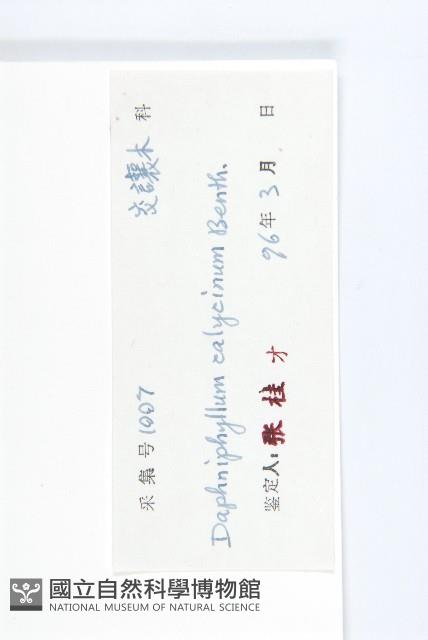 采集号 1007 交讓木 科
Daphniphyllum calycinum Benth.
鉴定人: 张桂才 96年 3月 日
國立自然科學博物館
NATIONAL MUSEUM OF NATURAL SCIENCE